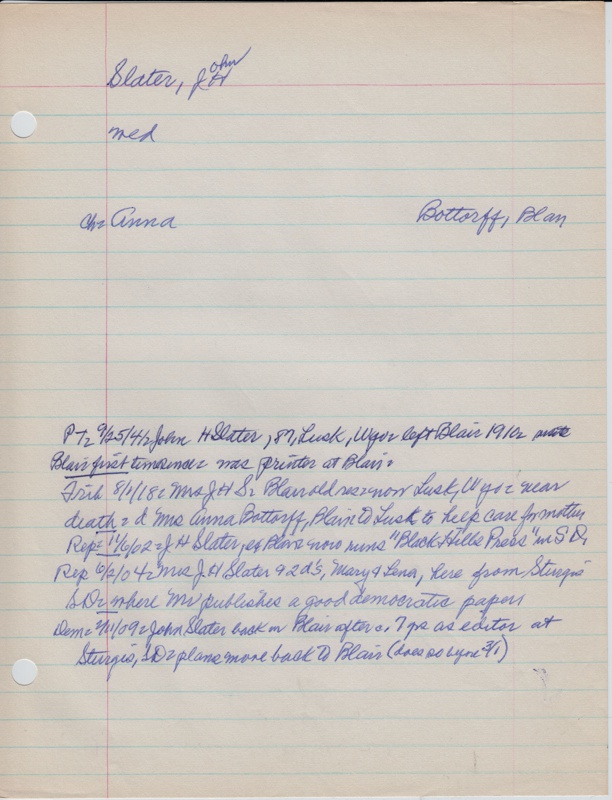 Slater, John H
med
ch= Anna Bottorff, Blan
PT= 9/25/41= John H Slater, 87, Lusk, Wyo= left Blair 1910=
Blair first time since= was printer at Blair=
Trib 8/1/18= Mrs J H S= Blair old res= now Lusk, Wyo= near
death= d Mrs Anna Bottorff, Blair= to Lusk to help care for mother
Rep= 11/6/02= J H Slater, ex Blair now runs "Black Hills Press" in S D,
Rep 6/2/04= Mrs J H Slater & 2 d's, Mary & Lena, here from Sturgis
S D= where Mr publishes a good democratic paper=
Dem= /11/09= John Slater back in Blair after c. 7 yrs as editor at
Sturgis, S D= plans move back to Blair (does so by 3/1)